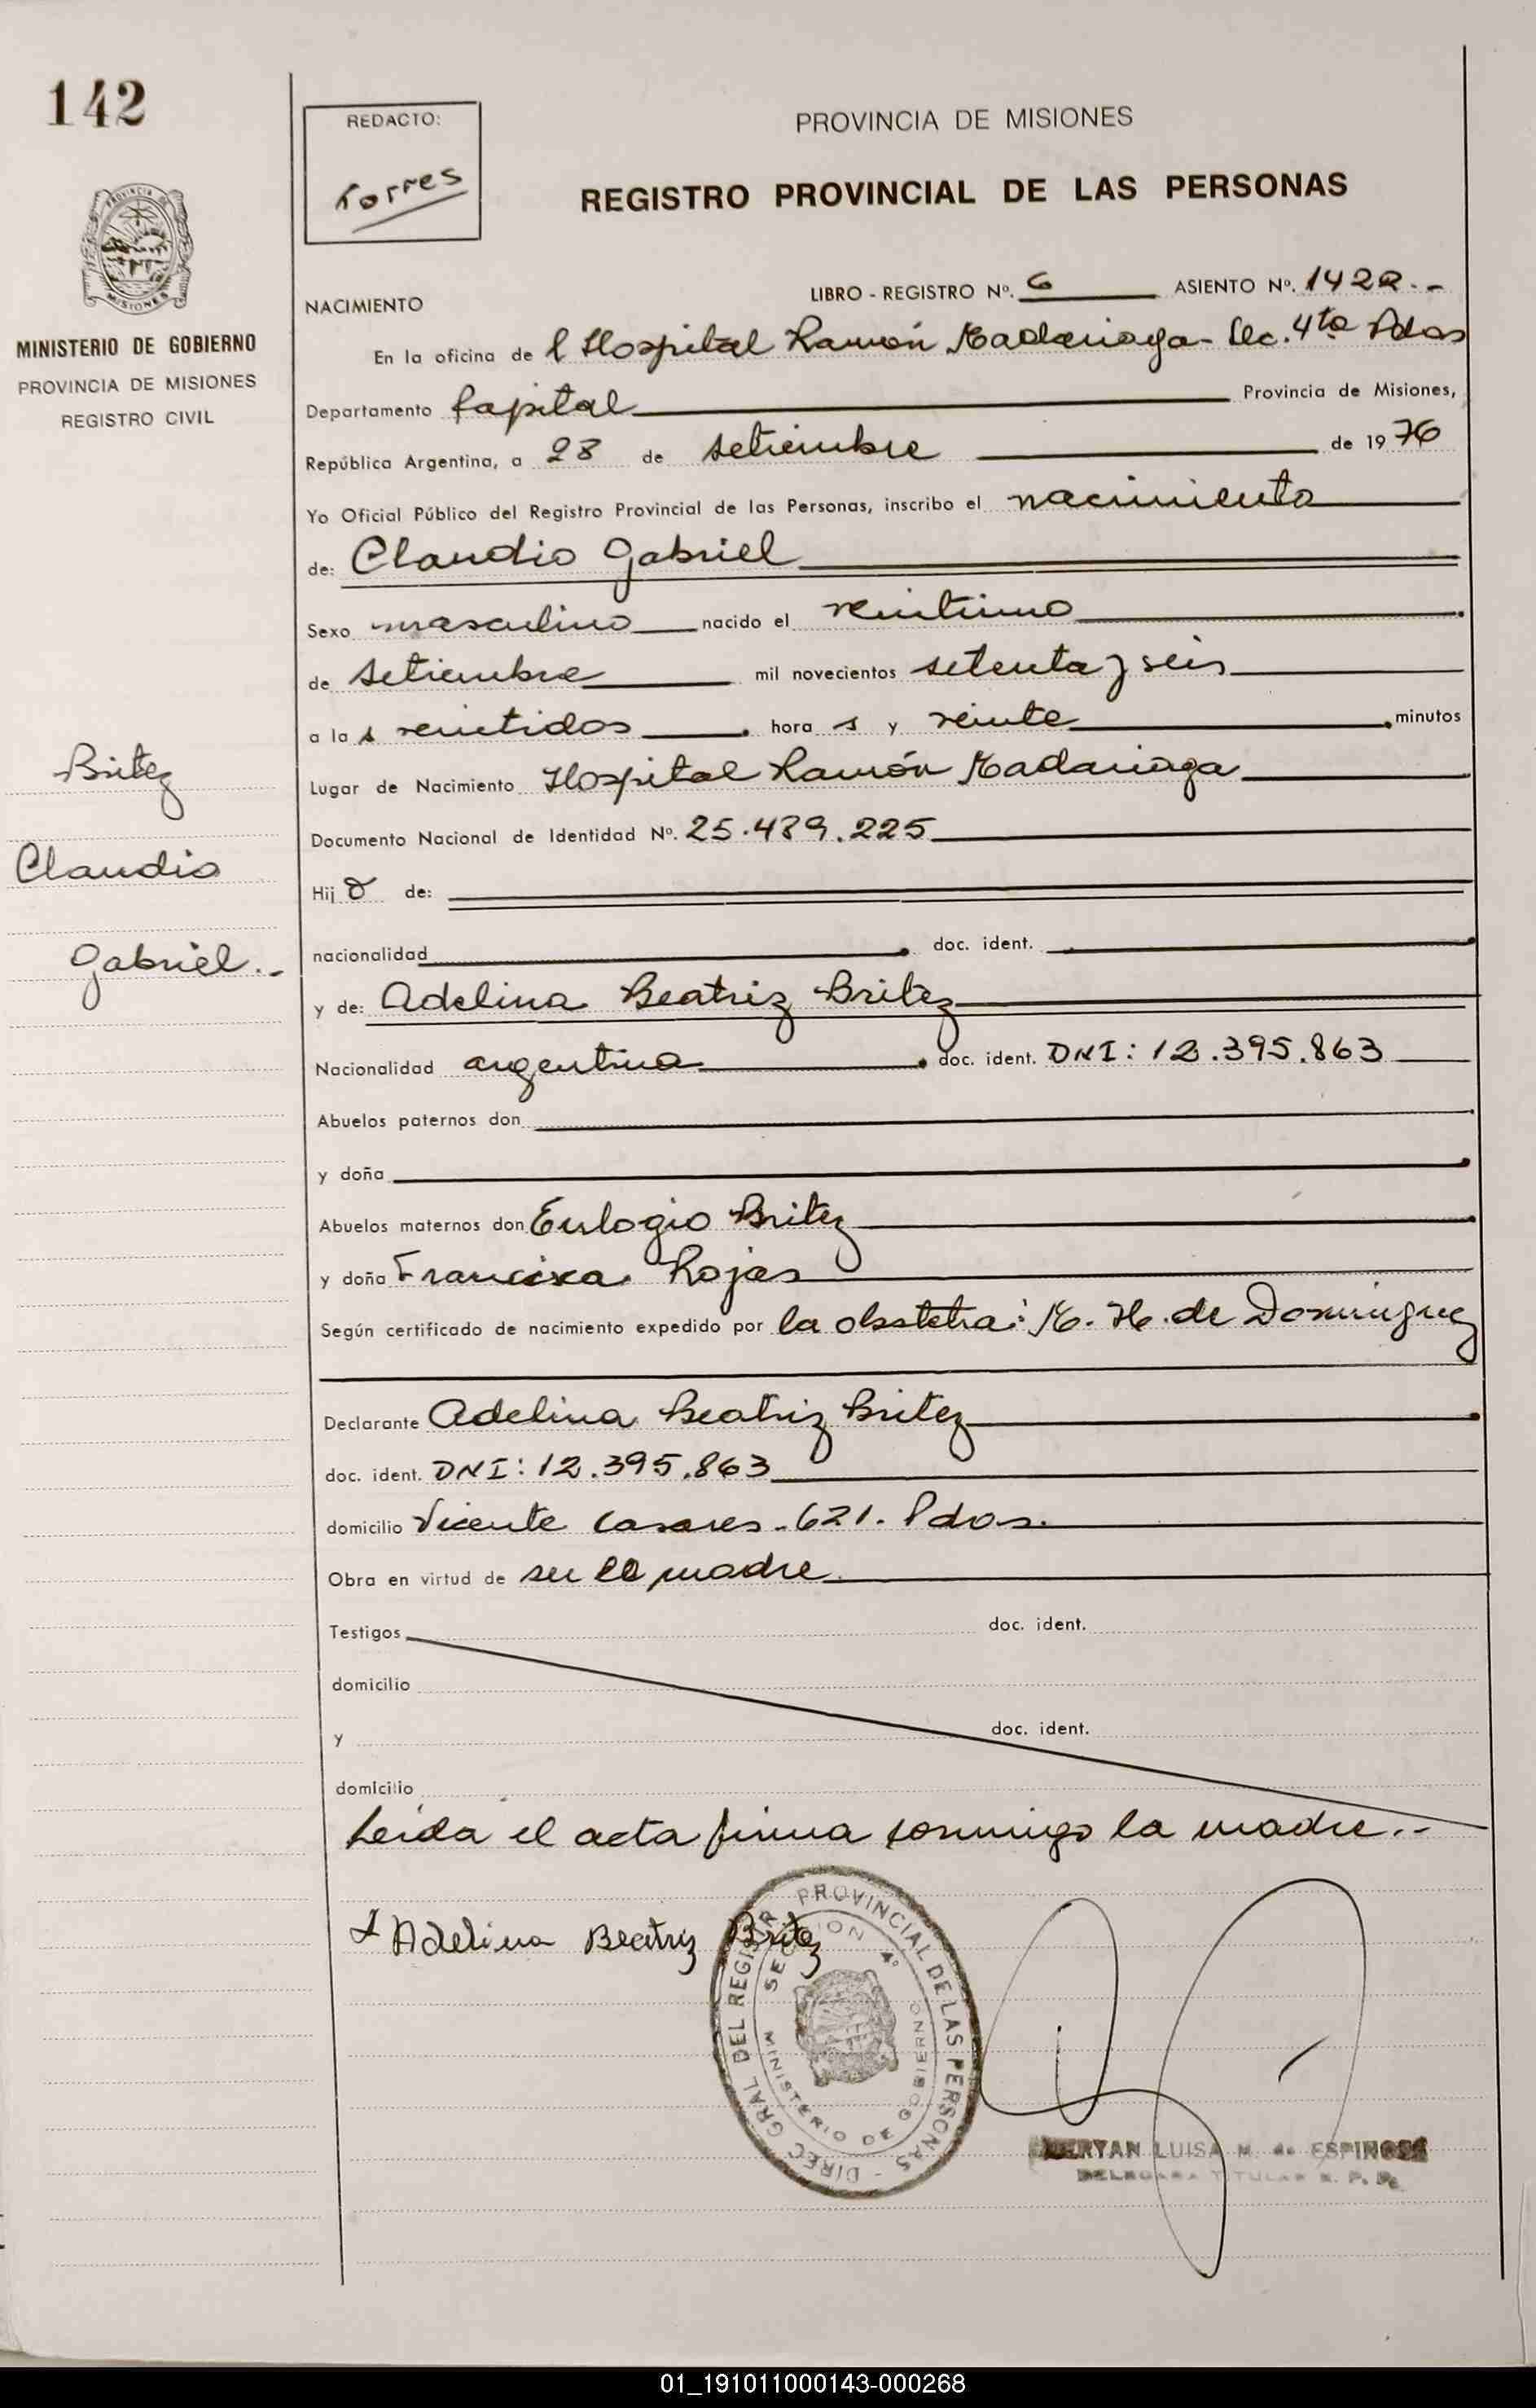 142
REDACTO:
Torres
PROVINCIA DE MISIONES
REGISTRO PROVINCIAL DE LAS PERSONAS
PROVINCIA DE MISIONES
MINISTERIO DE GOBIERNO
PROVINCIA DE MISIONES
REGISTRO CIVIL
Britez
Claudio
Gabriel.-
NACIMIENTO
LIBRO - REGISTRO Nº. 6 ASIENTO Nº. 1422.-
En la oficina de l Hospital Ramón Madariaga - Sec. 4ta Pdas
Departamento Capital Provincia de Misiones,
República Argentina, a 28 de setiembre de 1976
Yo Oficial Público del Registro Provincial de las Personas, inscribo el nacimiento
de: Claudio Gabriel
Sexo masculino nacido el
de setiembre mil novecientos setenta y seis
a la s veintidos hora s y veinte minutos
Lugar de Nacimiento Hospital Ramón Madariaga
Documento Nacional de Identidad Nº. 25.439.225
Hij o de:
nacionalidad doc. ident.
y de: Adelina Beatriz Britez
Nacionalidad argentina doc. ident. DNI: 12.395.863
Abuelos paternos don
y doña
Abuelos maternos don Eulogio Britez
y doña Francisca Rojas
Según certificado de nacimiento expedido por la obstetra: M. H. de Dominguez
Declarante Adelina Beatriz Britez
doc. ident. DNI: 12.395.863
domicilio Vicente Casares - 621. Pdas.
Obra en virtud de ser la madre
Testigos doc. ident.
domicilio
y doc. ident.
domicilio
Leída el acta firma conmigo la madre.-
Adelina Beatriz Britez
DIREC GRAL DEL REGISTR PROVINCIAL DE LAS PERSONAS -
SECCION 4º
MINISTERIO DE GOBIERNO
LUISA M. de ESPINOSA
DELEGADA TITULAR R. P. P.
01_191011000143-000268